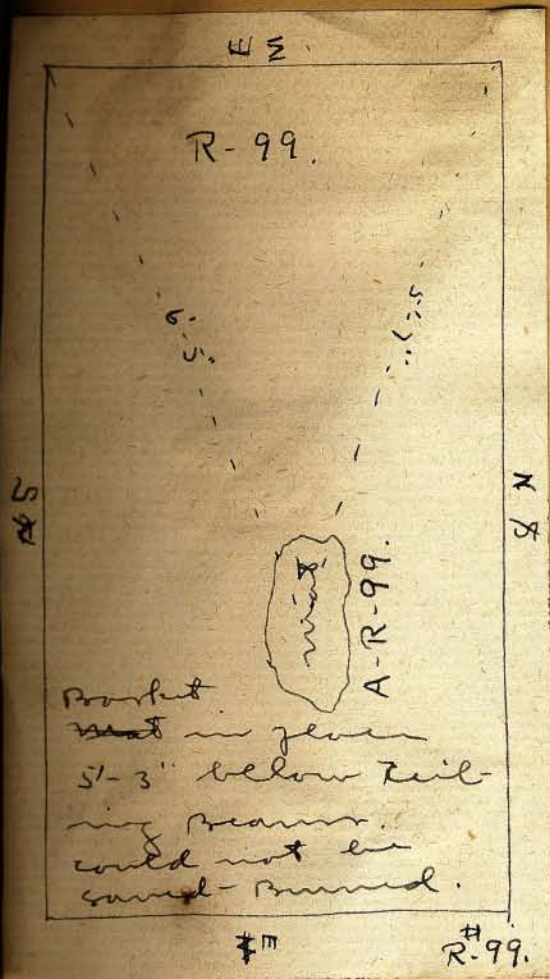 E W
R-99.
6'
5'
S
N
mat
A-R-99.
Basket
mat in place
5'-3" below Ceil-
ing Beams.
could not be
saved - Burned.
E
R#-99.